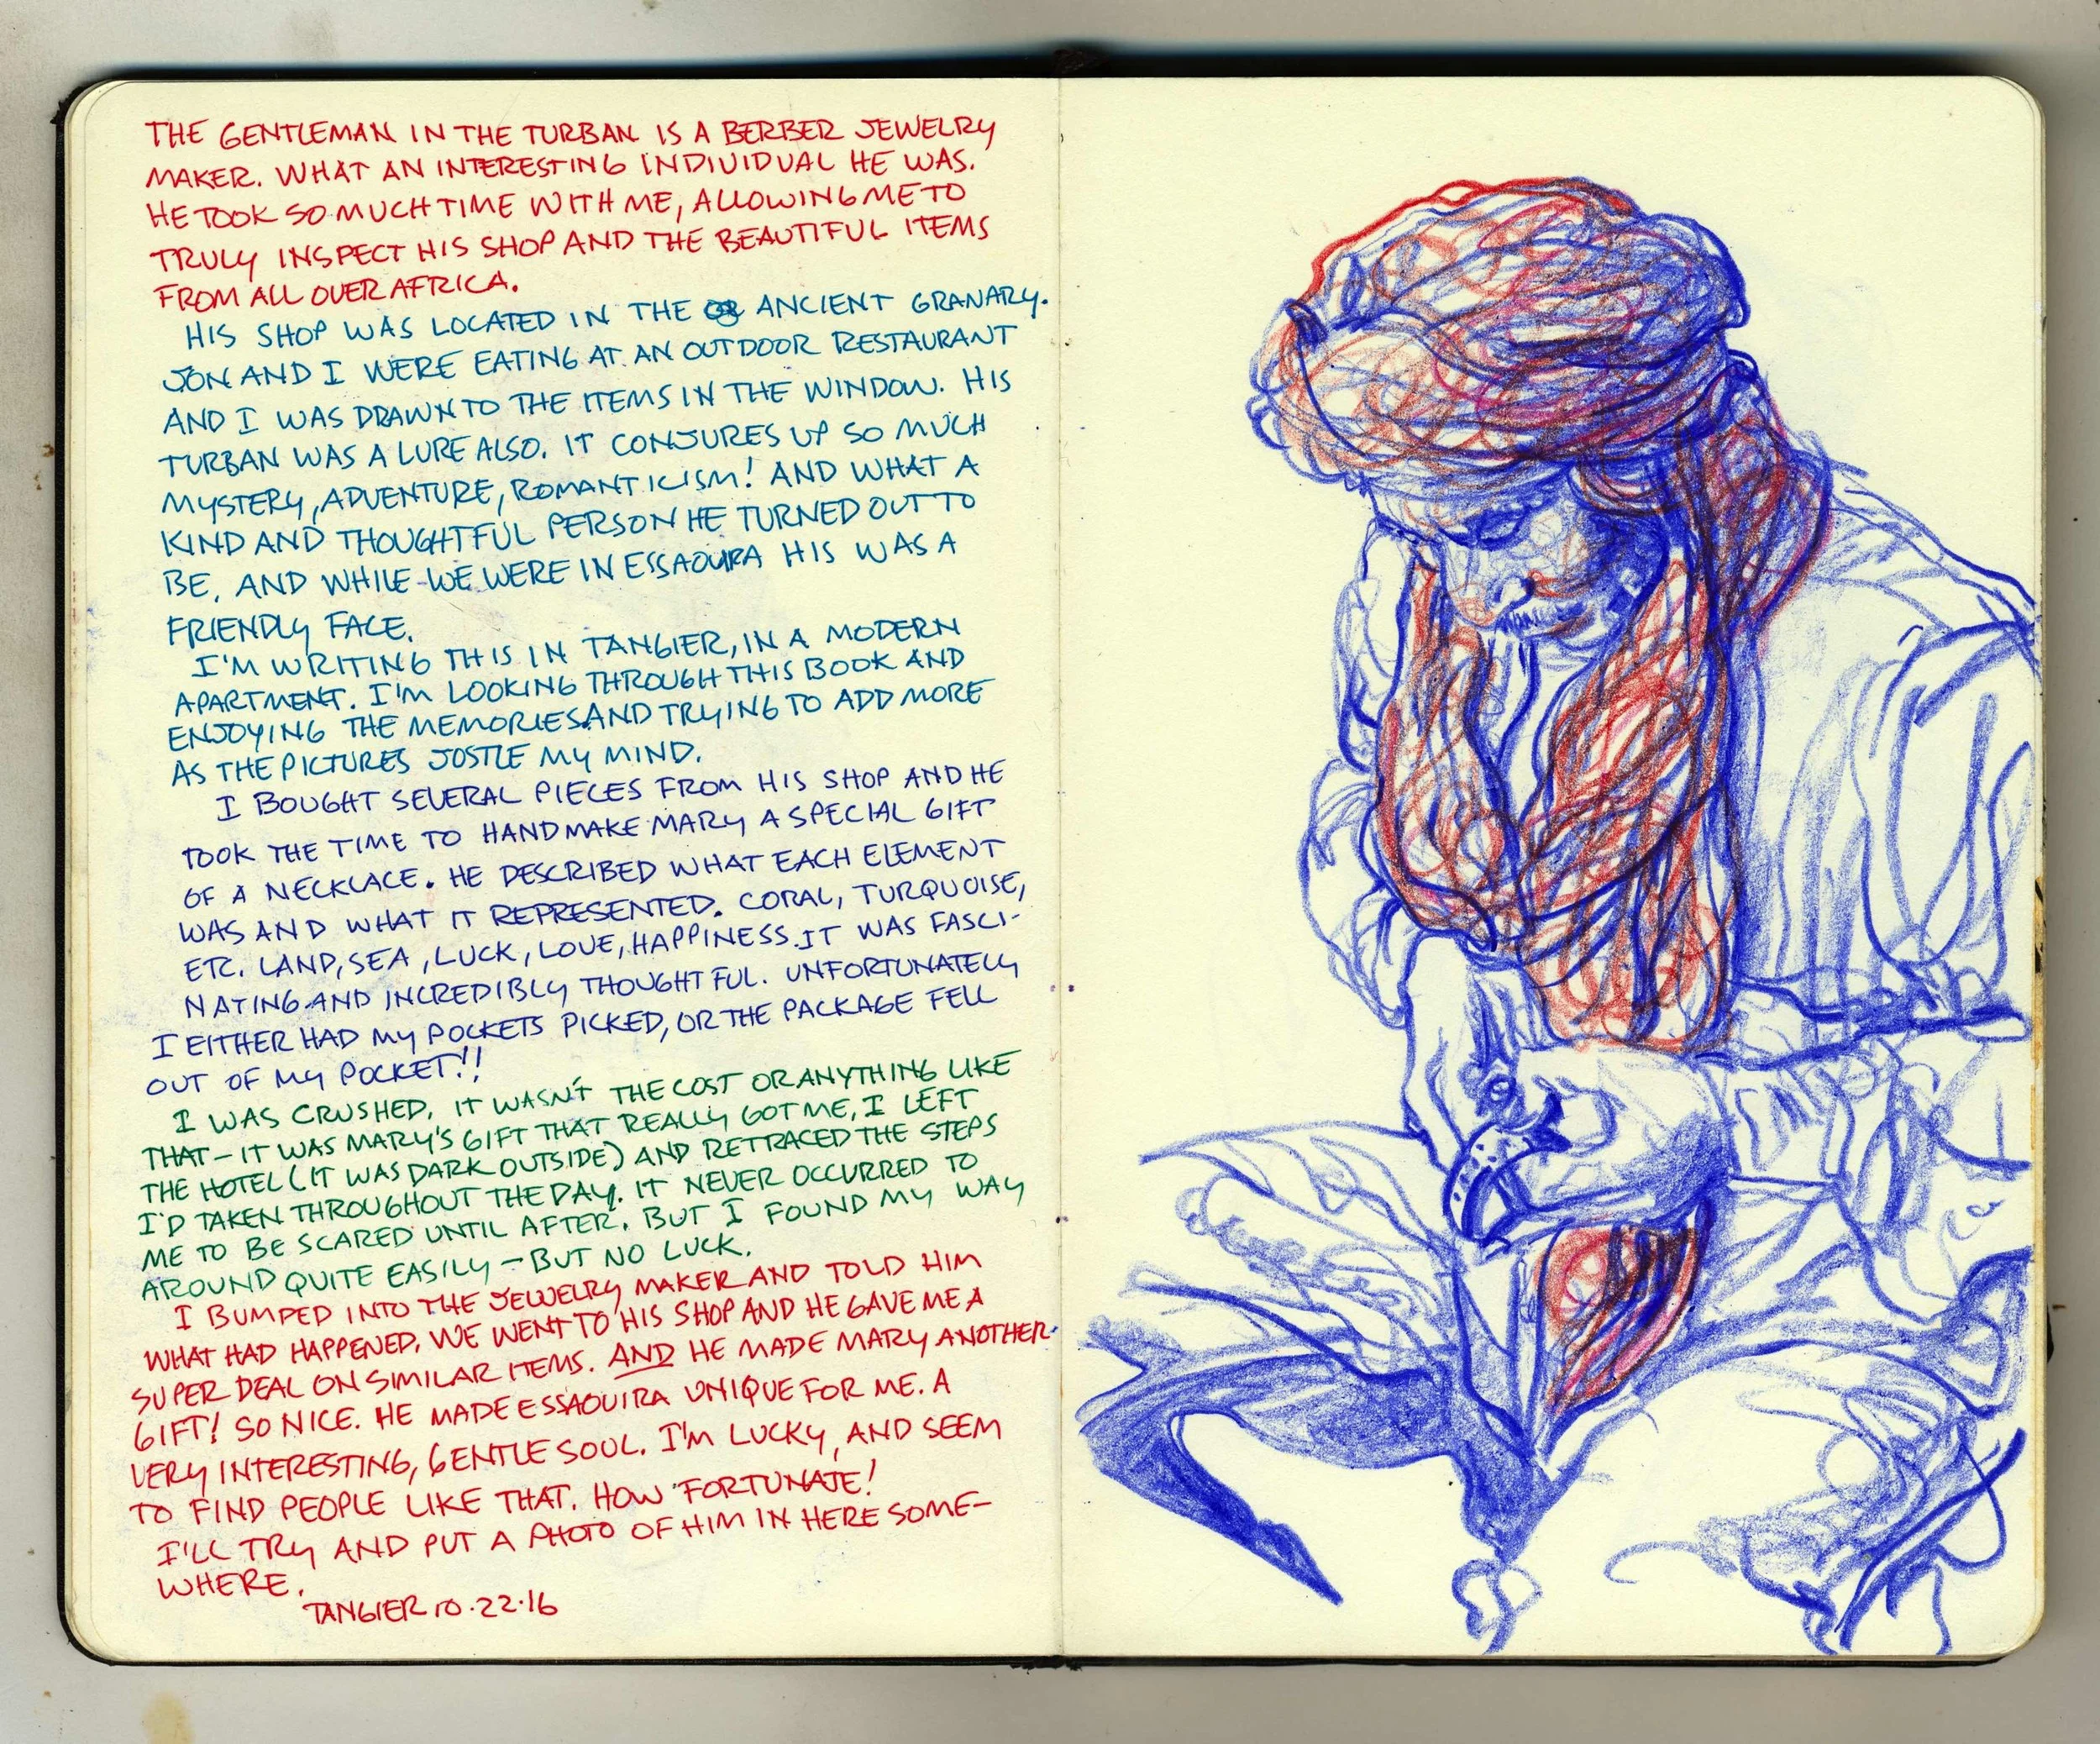 THE GENTLEMAN IN THE TURBAN IS A BERBER JEWELRY
MAKER. WHAT AN INTERESTING INDIVIDUAL HE WAS.
HE TOOK SO MUCH TIME WITH ME, ALLOWING ME TO
TRULY INSPECT HIS SHOP AND THE BEAUTIFUL ITEMS
FROM ALL OVER AFRICA.
HIS SHOP WAS LOCATED IN THE ANCIENT GRANARY.
JON AND I WERE EATING AT AN OUTDOOR RESTAURANT
AND I WAS DRAWN TO THE ITEMS IN THE WINDOW. HIS
TURBAN WAS A LURE ALSO. IT CONJURES UP SO MUCH
MYSTERY, ADVENTURE, ROMANTICISM! AND WHAT A
KIND AND THOUGHTFUL PERSON HE TURNED OUT TO
BE, AND WHILE WE WERE IN ESSAOUIRA HIS WAS A
FRIENDLY FACE.
I'M WRITING THIS IN TANGIER, IN A MODERN
APARTMENT. I'M LOOKING THROUGH THIS BOOK AND
ENJOYING THE MEMORIES AND TRYING TO ADD MORE
AS THE PICTURES JOSTLE MY MIND.
I BOUGHT SEVERAL PIECES FROM HIS SHOP AND HE
TOOK THE TIME TO HANDMAKE MARY A SPECIAL GIFT
OF A NECKLACE. HE DESCRIBED WHAT EACH ELEMENT
WAS AND WHAT IT REPRESENTED. CORAL, TURQUOISE,
ETC. LAND, SEA, LUCK, LOVE, HAPPINESS. IT WAS FASCI-
NATING AND INCREDIBLY THOUGHTFUL. UNFORTUNATELY
I EITHER HAD MY POCKETS PICKED, OR THE PACKAGE FELL
OUT OF MY POCKET!!
I WAS CRUSHED. IT WASN'T THE COST OR ANYTHING LIKE
THAT - IT WAS MARY'S GIFT THAT REALLY GOT ME, I LEFT
THE HOTEL (IT WAS DARK OUTSIDE) AND RETRACED THE STEPS
I'D TAKEN THROUGHOUT THE DAY. IT NEVER OCCURRED TO
ME TO BE SCARED UNTIL AFTER. BUT I FOUND MY WAY
AROUND QUITE EASILY - BUT NO LUCK.
I BUMPED INTO THE JEWELRY MAKER AND TOLD HIM
WHAT HAD HAPPENED. WE WENT TO HIS SHOP AND HE GAVE ME A
SUPER DEAL ON SIMILAR ITEMS. AND HE MADE MARY ANOTHER
GIFT! SO NICE. HE MADE ESSAOUIRA UNIQUE FOR ME. A
VERY INTERESTING, GENTLE SOUL. I'M LUCKY, AND SEEM
TO FIND PEOPLE LIKE THAT. HOW FORTUNATE!
I'LL TRY AND PUT A PHOTO OF HIM IN HERE SOME-
WHERE.
TANGIER 10.22.16